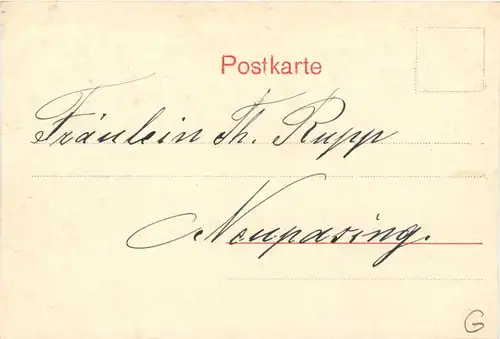 Postkarte
Fräulein Th. Rupp
Neupasing.
G